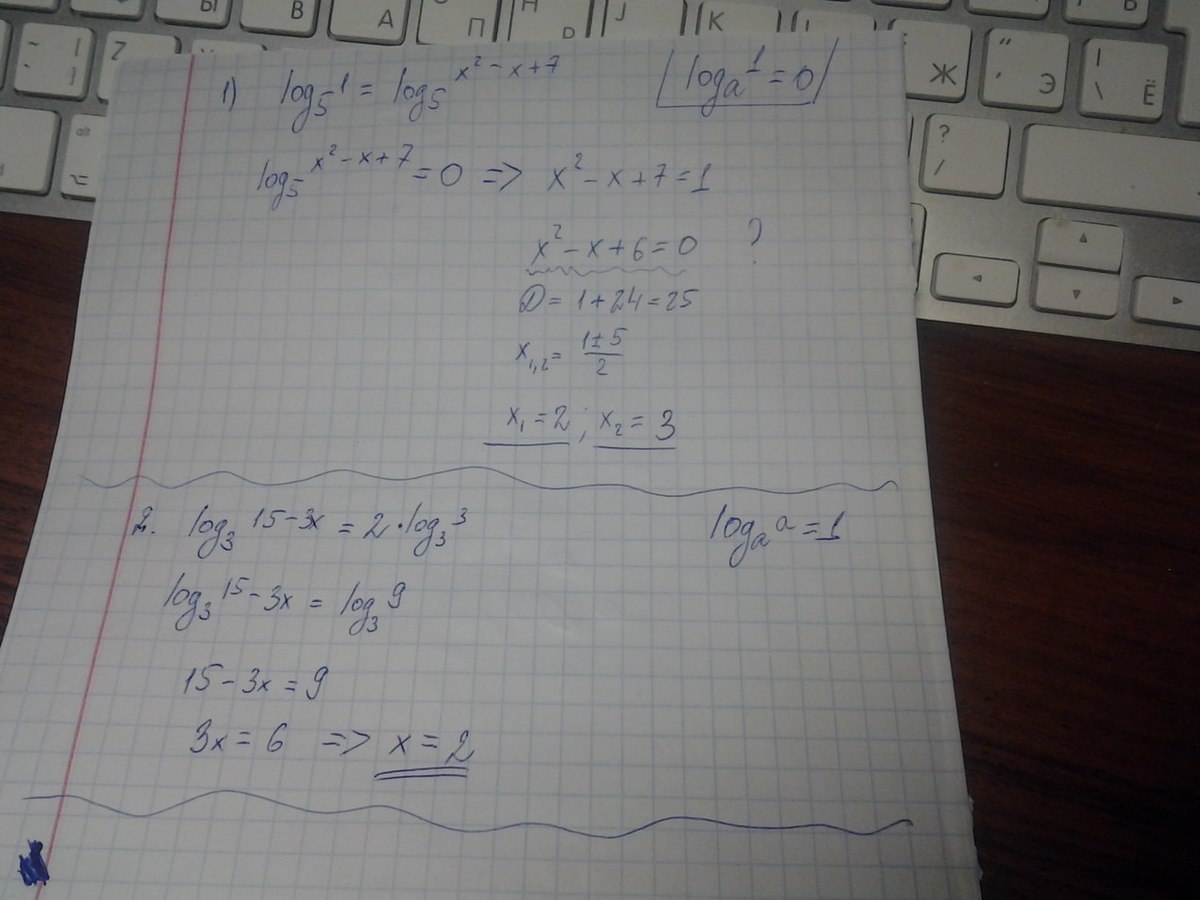 Ы В А П Н Р J K L Ь
~ - [ ] Z
Ж " ' Э | \ Ё
alt ⌥ ? /
▲ ◄ ▼ ►
1) log₅1 = log₅ x² - x + 7 logₐ1 = 0
log₅ x² - x + 7 = 0 => x² - x + 7 = 1
x² - x + 6 = 0 ?
D = 1 + 24 = 25
x₁,₂ = (1 ± 5)/2
x₁ = 2 ; x₂ = 3
2. log₃ 15 - 3x = 2 · log₃ 3 logₐ a = 1
log₃ 15 - 3x = log₃ 9
15 - 3x = 9
3x = 6 => x = 2